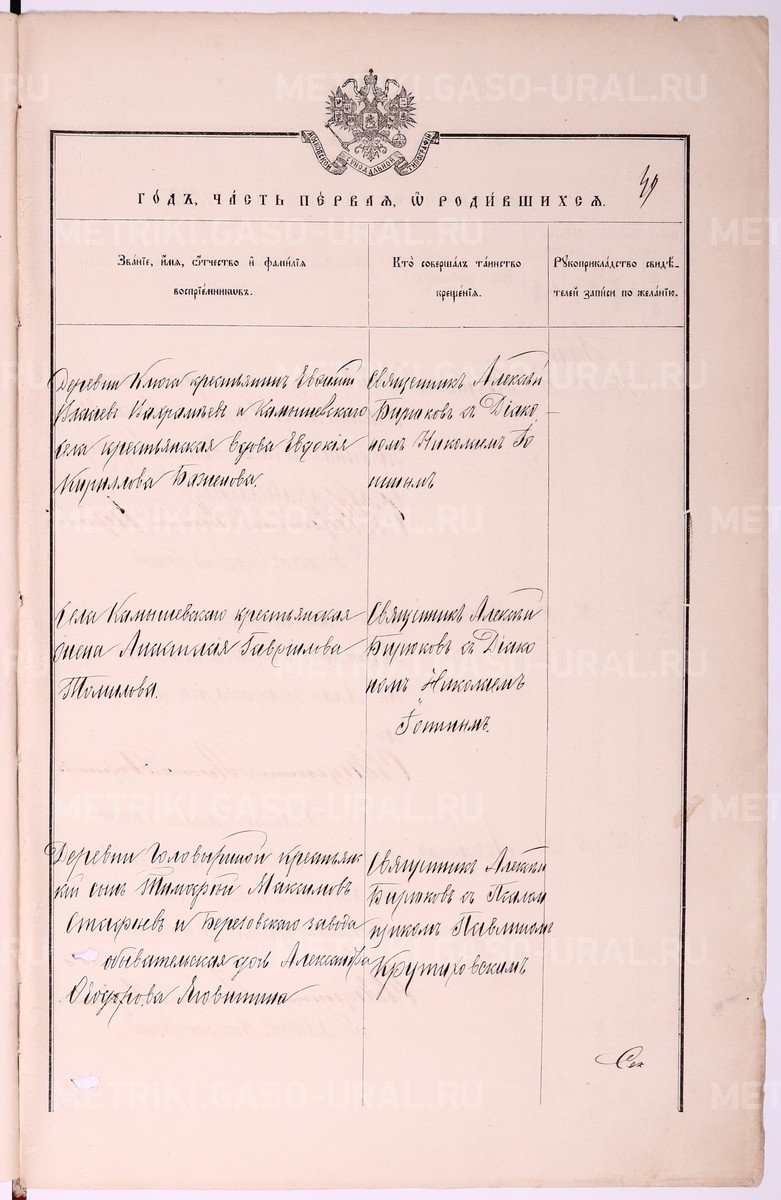 METRIKI.GASO-URAL.RU
МОСКОВСКОЙ СѴНОДАЛЬНОЙ ТИПОГРАФІИ
ГОДЪ, ЧАСТЬ ПЕРВАЯ, Ѡ РОДИВШИХСЯ.
Званіе, имя, отчество и фамилія
воспріемниковъ.
Кто совершалъ таинство
крещенія.
Рукоприкладство свидѣ-
телей записи по желанію.
Деревни Ключа крестьянинъ Евсивій
Власіевъ Вахрамѣевъ и Камышевскаго
села крестьянская вдова Евдокія
Кириллова Баженова.
Священникъ Алексѣй
Бирюковъ съ Діако-
номъ Николаемъ Го
шинымъ
Села Камышевскаго крестьянская
жена Анастасія Гаврилова
Томилова.
Священникъ Алексѣй
Бирюковъ съ Діако
номъ Николаемъ
Деревни Головыриной крестьян
скій сынъ Тимофей Максимовъ
и Березовскаго завода
обывательская дочь Александра
Ѳеодорова
Священникъ Алексѣй
Бирюковъ съ Псалом
щикомъ Павлиномъ
Крутиховскимъ